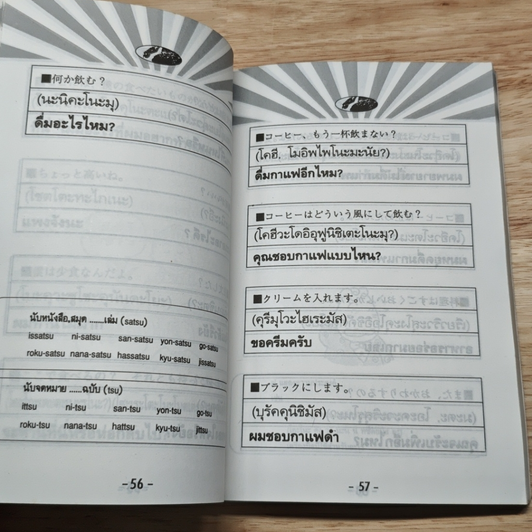 ■何か飲む？
(นะนิคะโนะมุ)
ดื่มอะไรไหม?
นับหนังสือ,สมุด ......เล่ม (satsu)
issatsu ni-satsu san-satsu yon-satsu go-satsu
roku-satsu nana-satsu hassatsu kyu-satsu jissatsu
นับจดหมาย ......ฉบับ (tsu)
ittsu ni-tsu san-tsu yon-tsu go-tsu
roku-tsu nana-tsu hattsu kyu-tsu jittsu
- 56 -
■コーヒー、もう一杯飲まない？
(โคฮี, โมอิพไพโนะมะนัย?)
ดื่มกาแฟอีกไหม?
■コーヒーはどういう風にして飲む？
(โคฮีวะโดอิอุฟูนิชิเตะโนะมุ?)
คุณชอบกาแฟแบบไหน?
■クリームを入れます。
(คุรีมุโวะไฮเระมัส)
ขอครีมครับ
■ブラックにします。
(บุรัคคุนิชิมัส)
ผมชอบกาแฟดำ
- 57 -